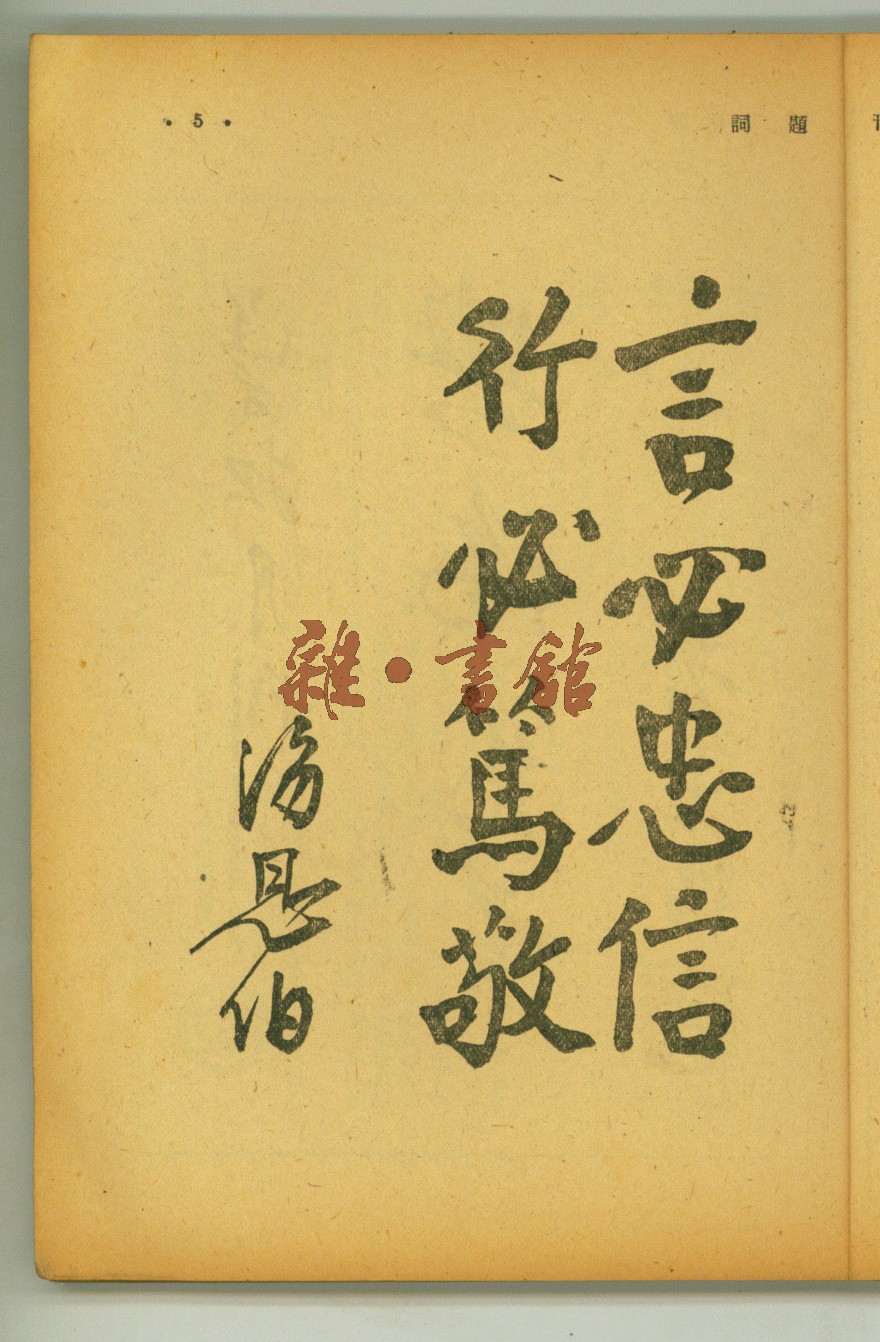 題詞
• 5 •
言必忠信
行必篤敬
湯恩伯
雜•書館